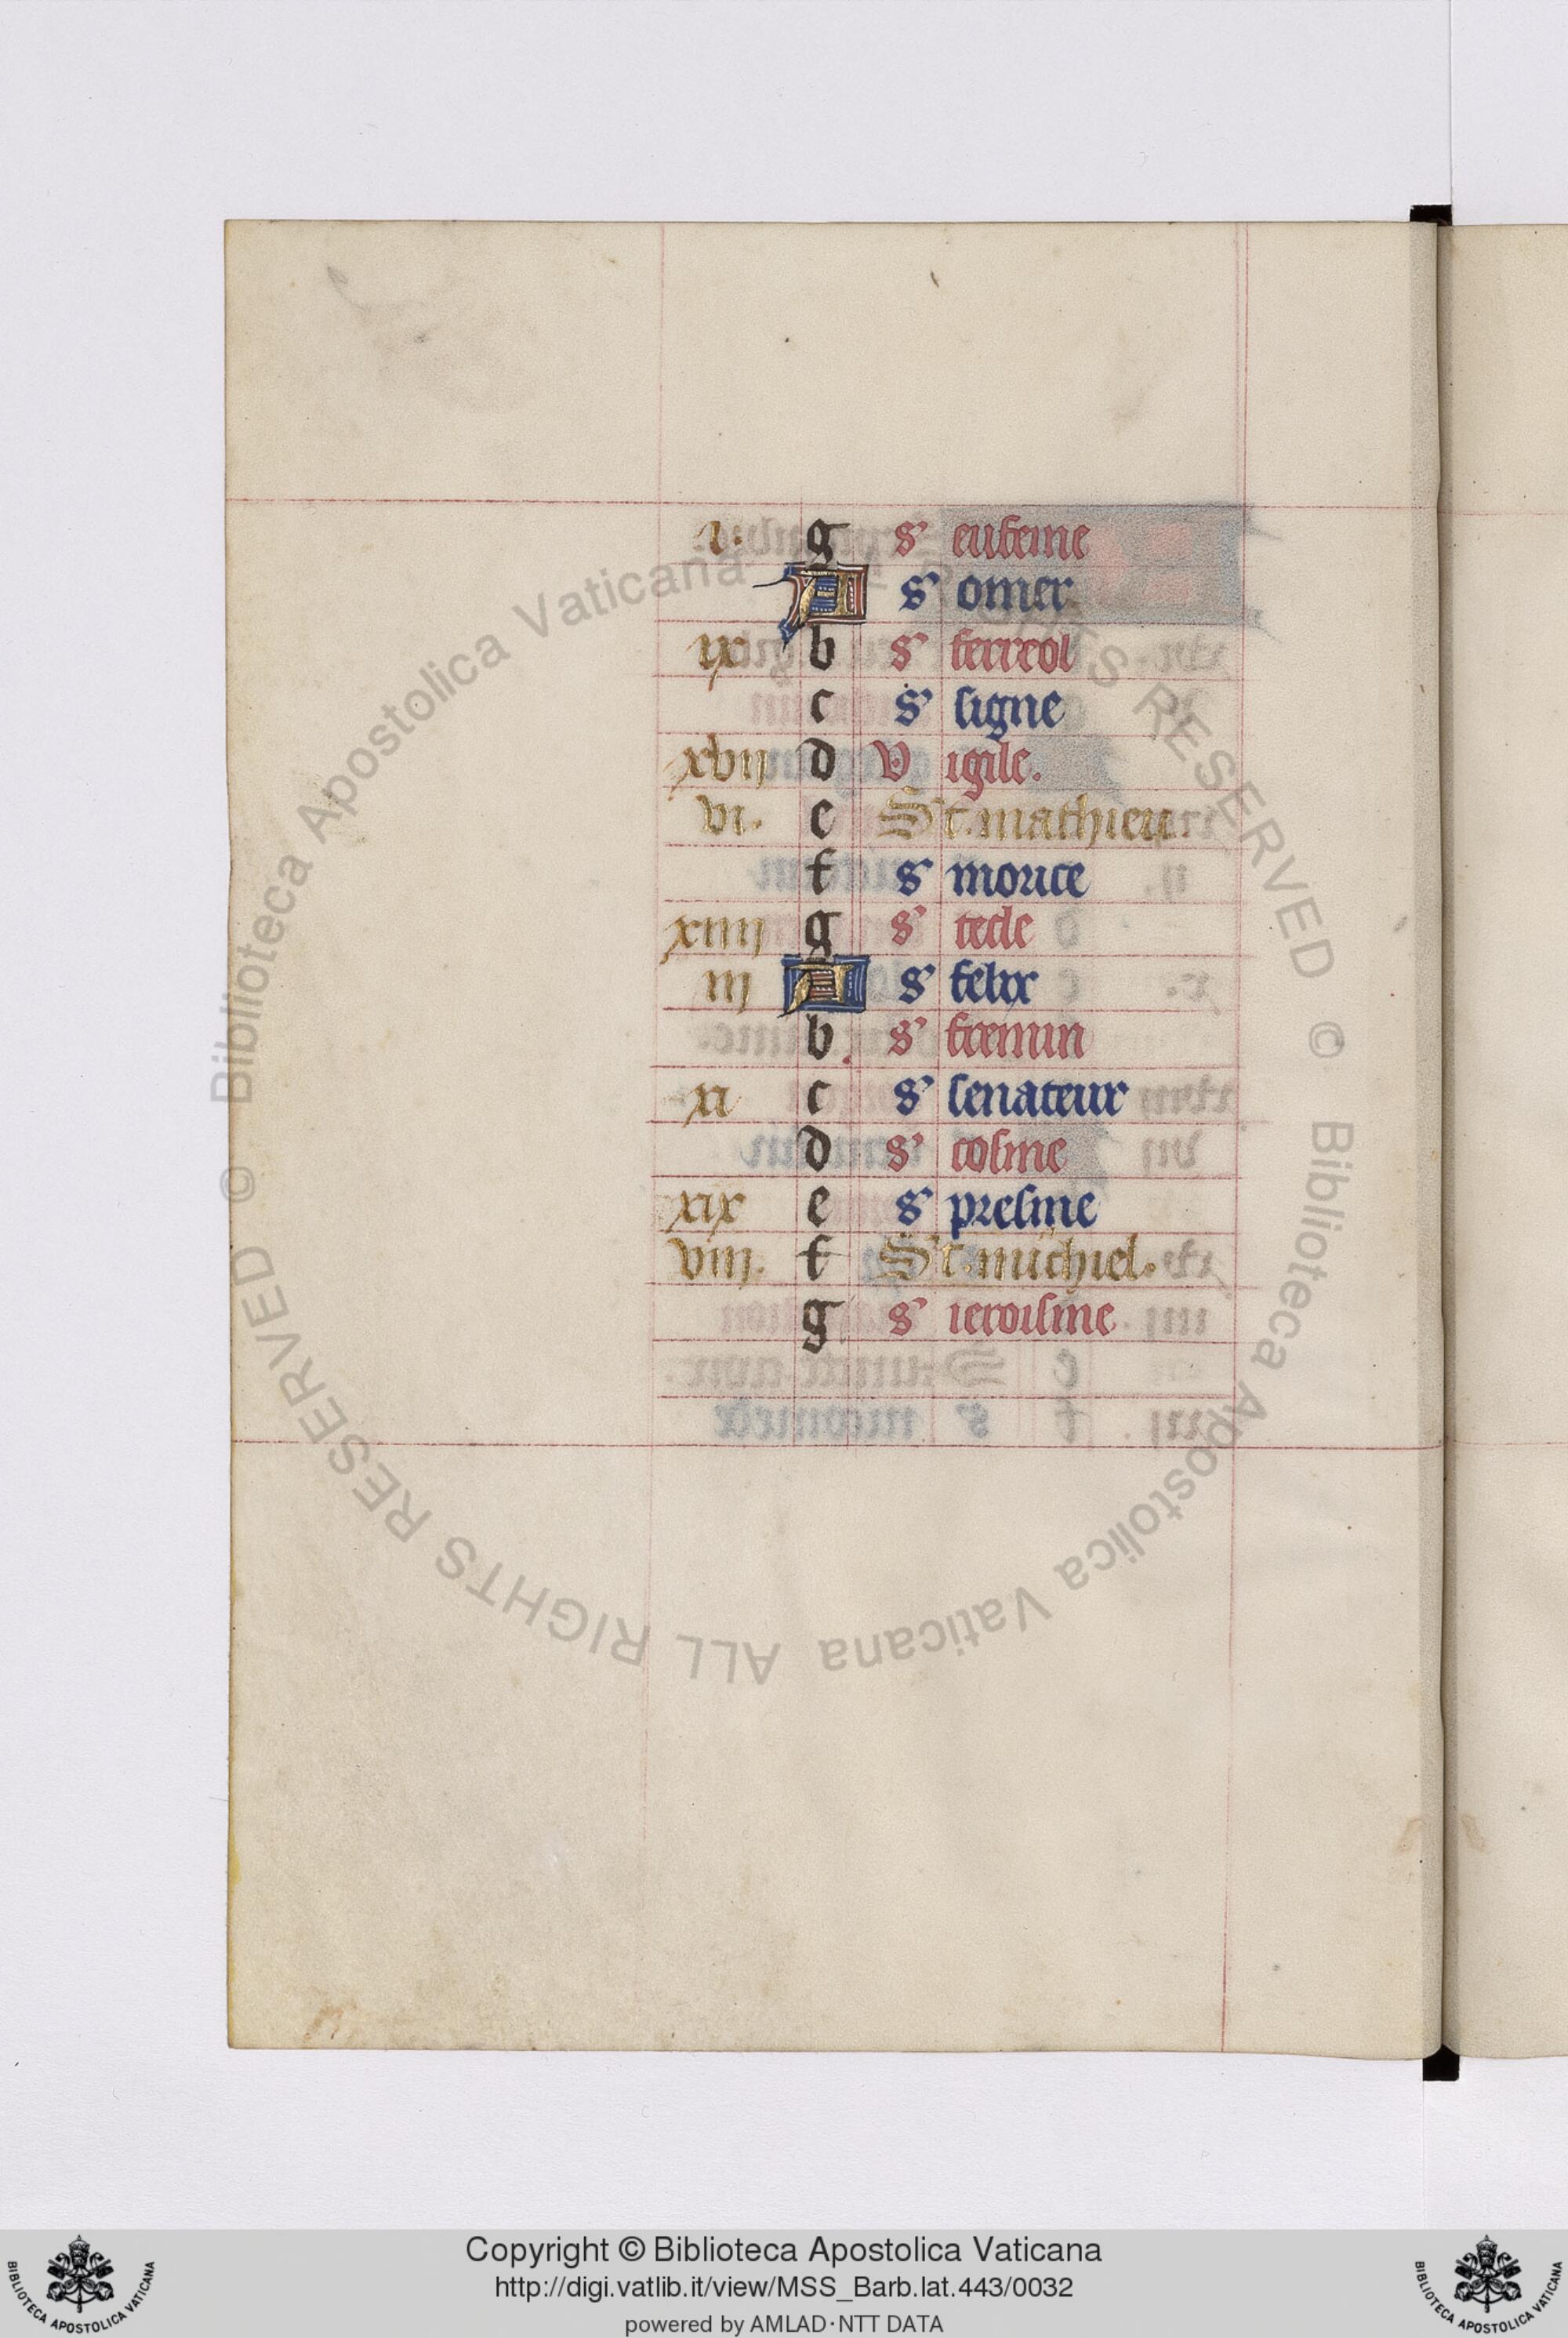 i. g s' eufeme
A s' omer
ix b s' ferreol
c s' signe
xvij d V igile.
vi. e St. mathieu
f s' morice
xiiij g s' tecle
iij A s' felix
b s' fremin
xi c s' senateur
d s' cosme
xix e s' presme
viij. f St. michiel.
g s' ieroisme
© Biblioteca Apostolica Vaticana ALL RIGHTS RESERVED © Biblioteca Apostolica Vaticana ALL RIGHTS RESERVED
Copyright © Biblioteca Apostolica Vaticana
http://digi.vatlib.it/view/MSS_Barb.lat.443/0032
powered by AMLAD·NTT DATA
BIBLIOTECA APOSTOLICA VATICANA
BIBLIOTECA APOSTOLICA VATICANA